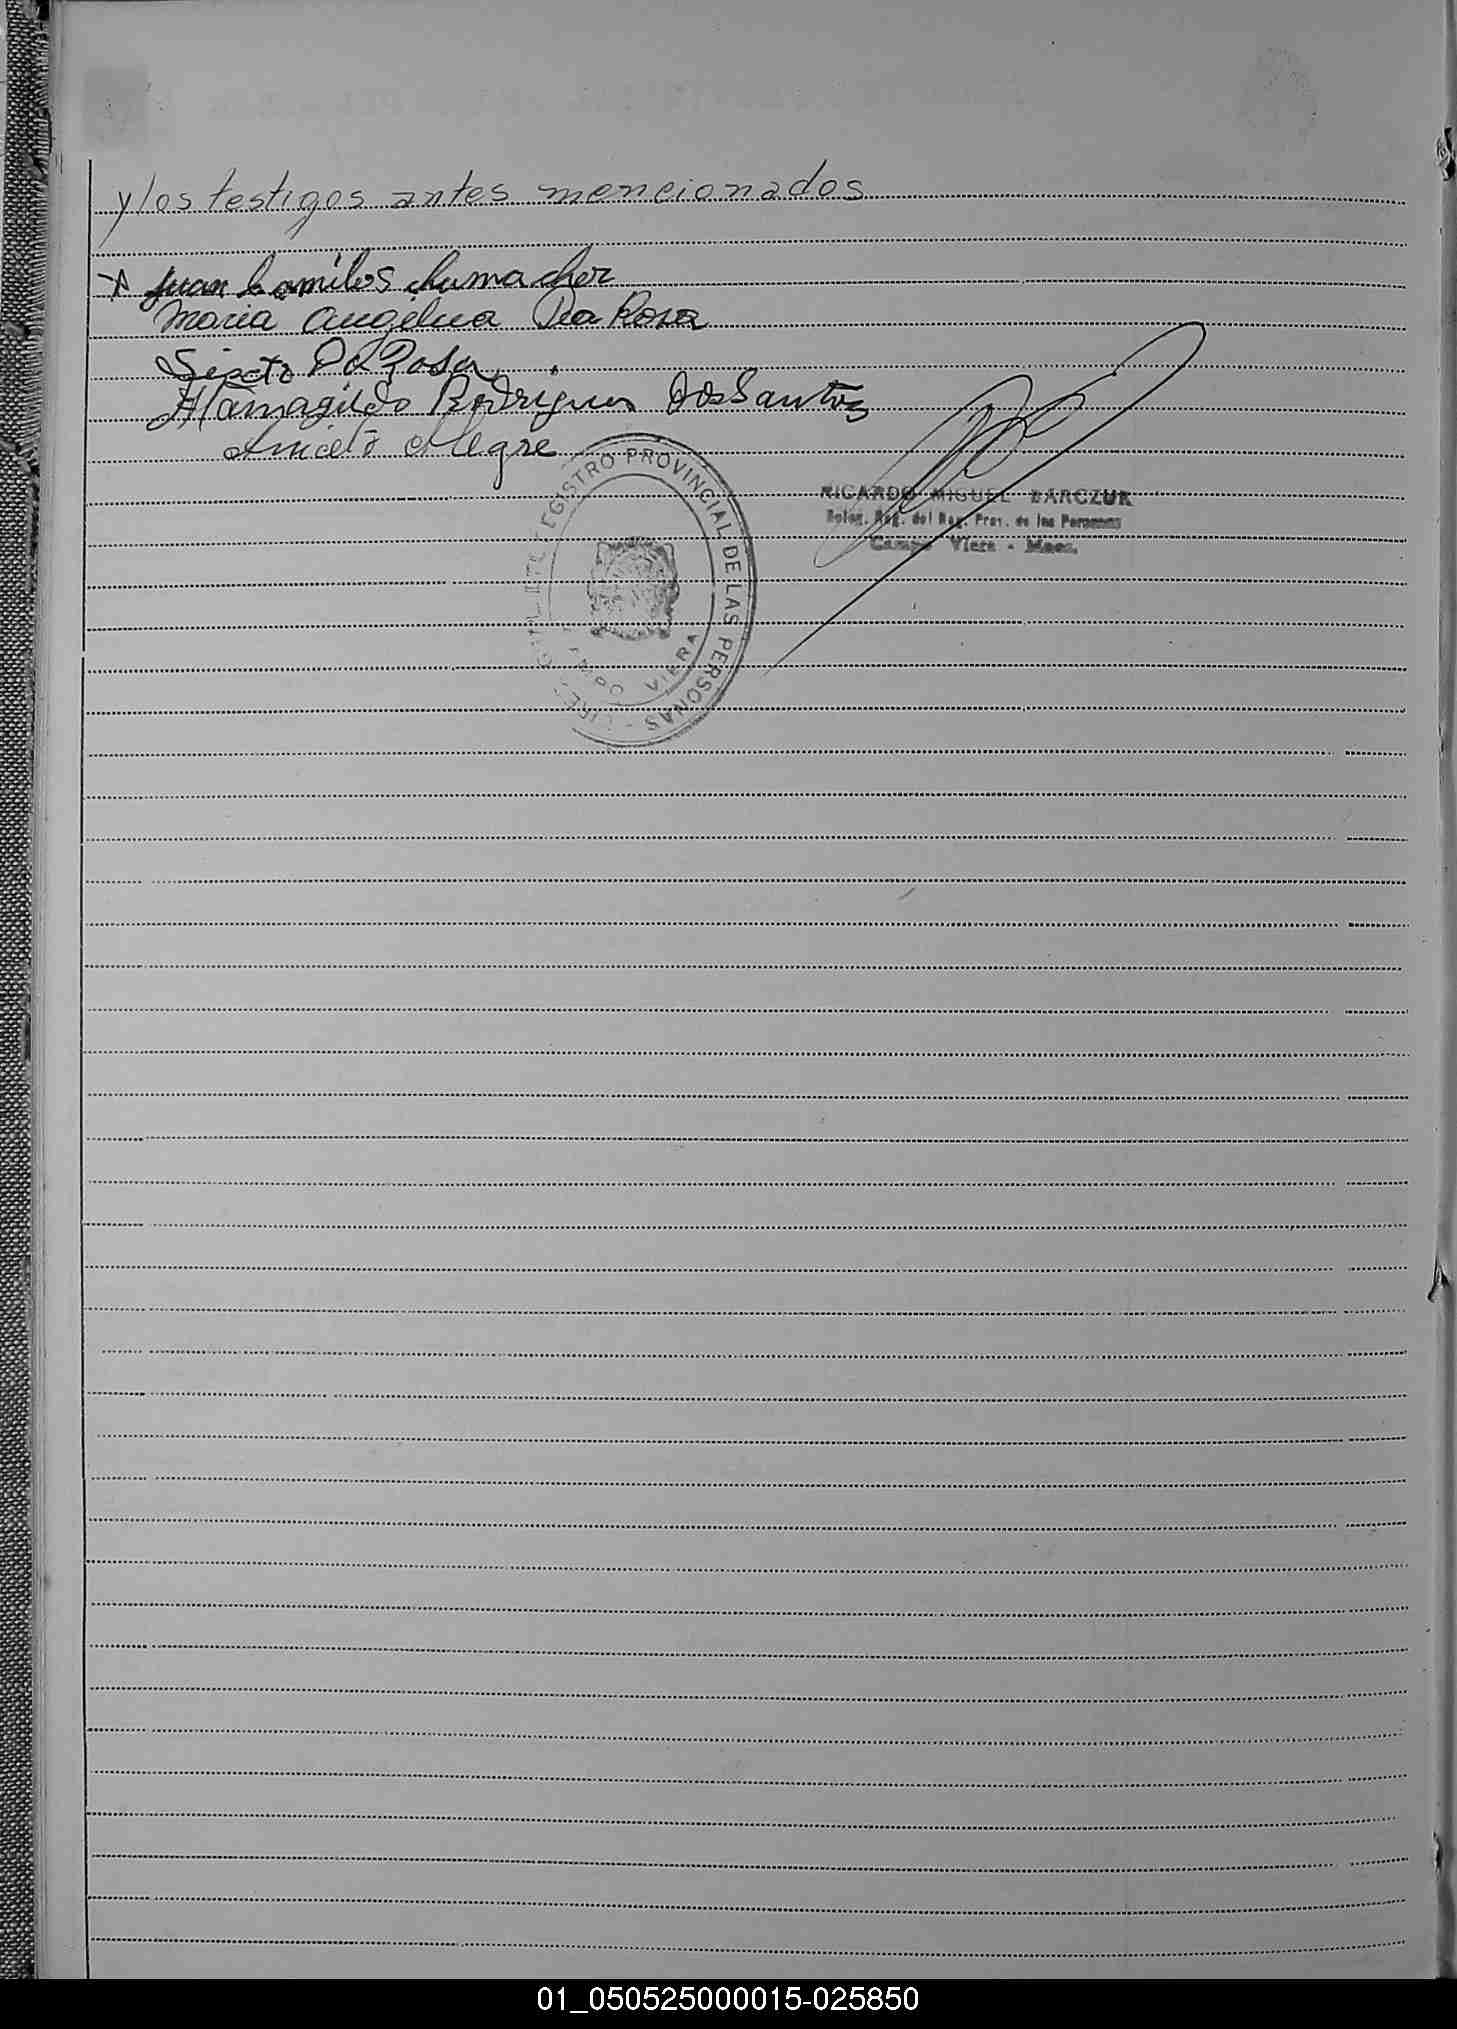 y los testigos antes mencionados
Juan Camilo Schumacher
Maria Angelica Da Rosa
Sixto Da Rosa
Atamagildo Rodrigues Dos Santos
Aniceto Alegre
REGISTRO PROVINCIAL DE LAS PERSONAS
CAMPO VIERA
RICARDO MIGUEL BARCZUK
Deleg. Reg. del Reg. Prov. de las Personas
Campo Viera - Mnes.
01_050525000015-025850